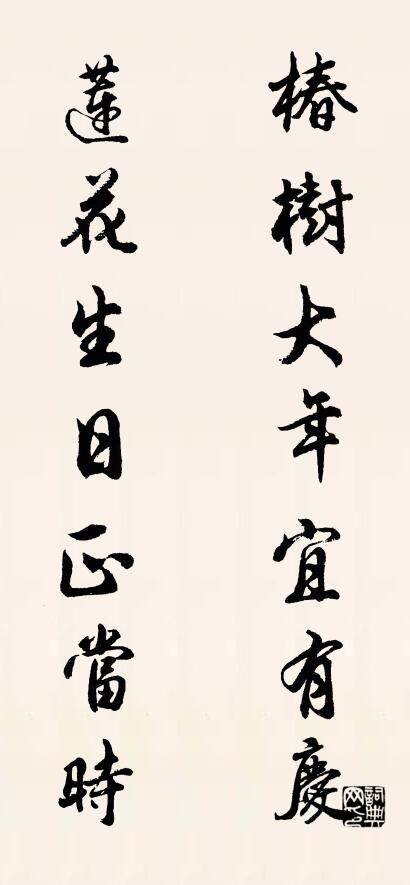 椿樹大年宜有慶
蓮花生日正當時
詞典網印